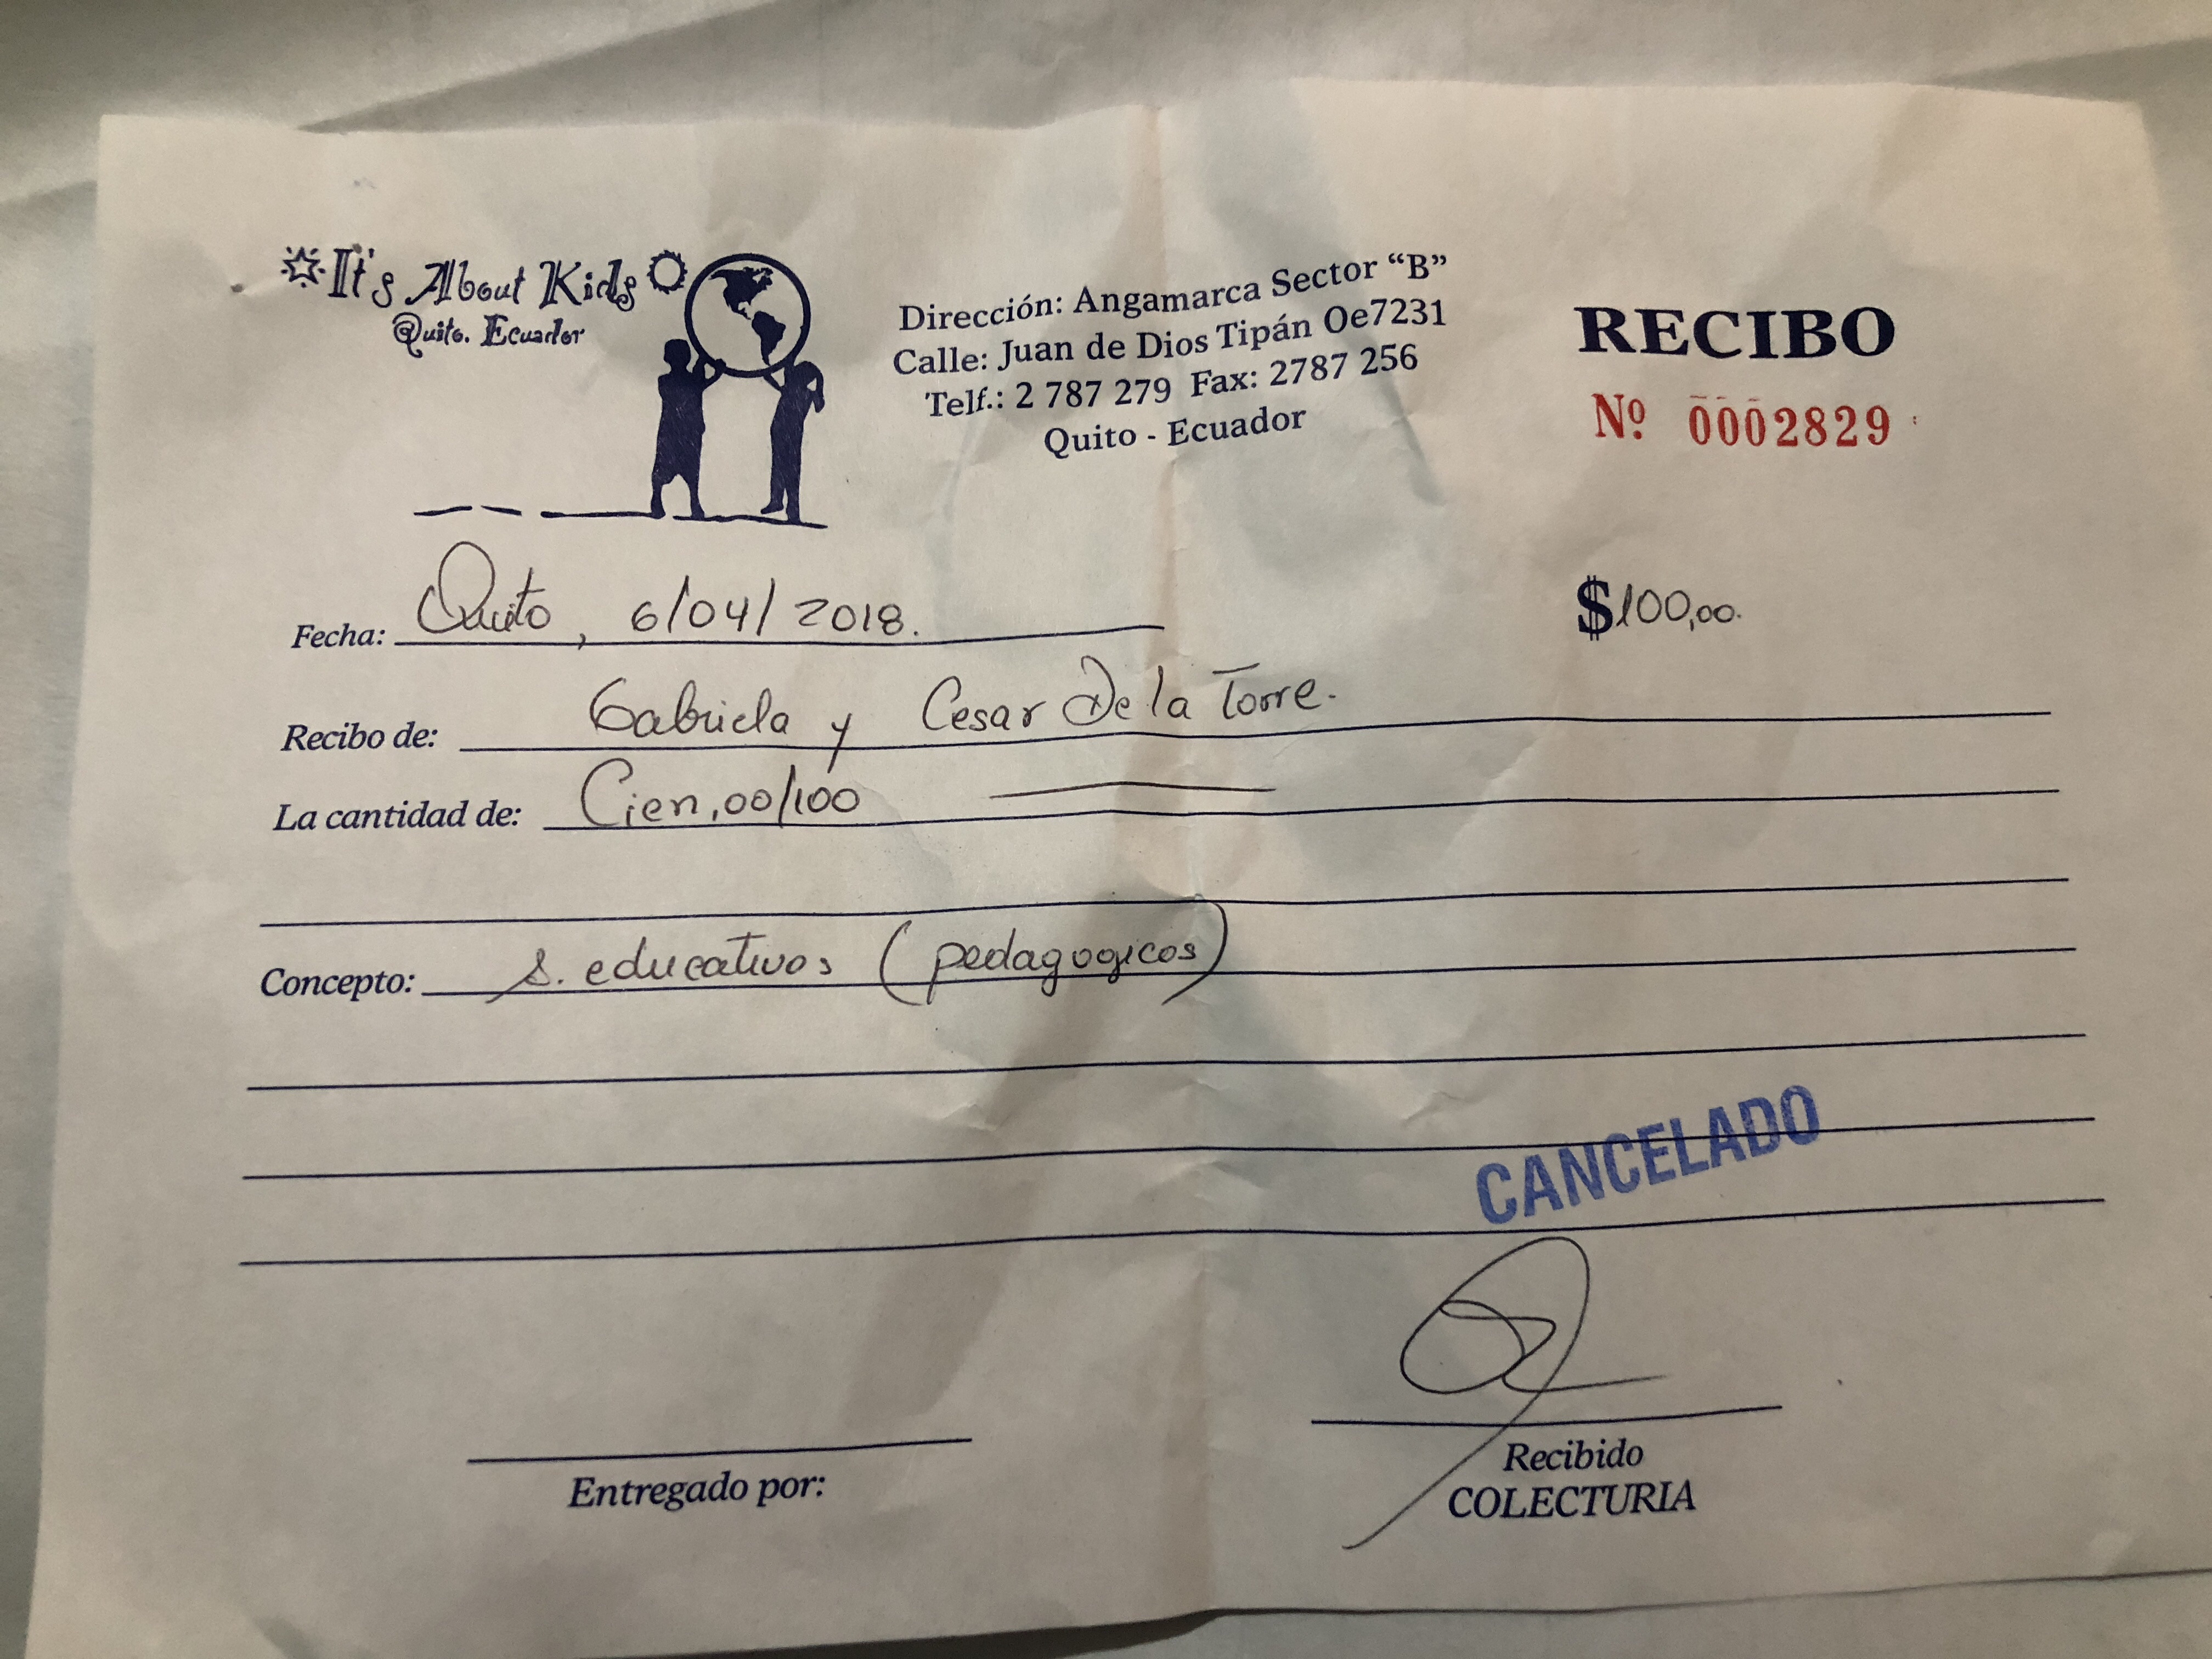 It's About Kids
Quito. Ecuador
Dirección: Angamarca Sector "B"
Calle: Juan de Dios Tipán Oe7231
Telf.: 2 787 279 Fax: 2787 256
Quito - Ecuador
RECIBO
Nº 0002829
Fecha: Quito, 6/04/2018.
$100,00.
Recibo de: Gabriela y Cesar De la Torre.
La cantidad de: Cien,00/100
Concepto: s. educativos (pedagogicos)
CANCELADO
Entregado por:
Recibido
COLECTURIA